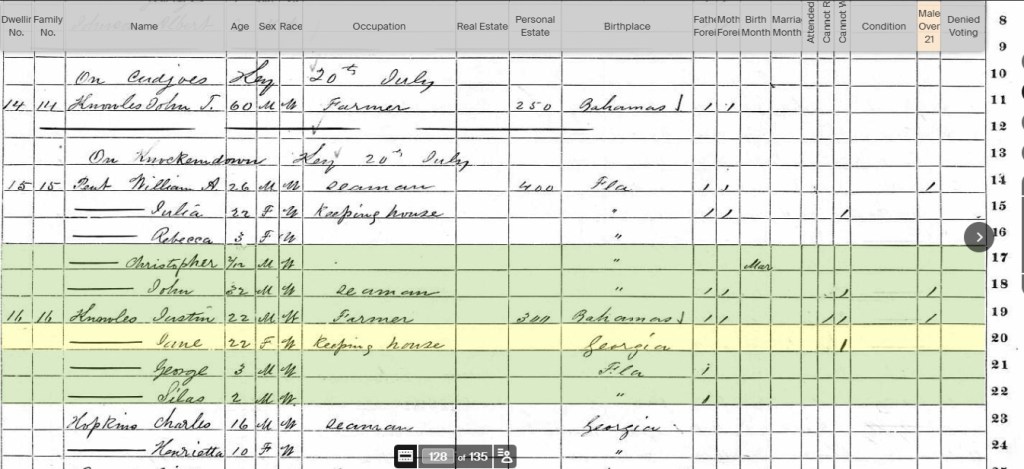 Dwelli No. Family No. Name Age Sex Race Occupation Real Estate Personal Estate Birthplace Fath Forei Moth Forei Birth Month Marria Month Attended Cannot R Cannot W Condition Male Over 21 Denied Voting 8
9
On Cudjoes Key 20th July 10
14 14 Knowles John T. 60 M W Farmer 250 Bahamas / / 11
12
On Knockemdown Key 20th July 13
15 15 Pent William A. 26 M W Seaman 400 Fla / / / 14
—— Julia 22 F W Keeping house " / / / 15
—— Rebecca 3 F W " 16
—— Christopher 3/12 M W " Mar 17
—— John 32 M W Seaman " / / / / 18
16 16 Knowles Justin 22 M W Farmer 300 Bahamas / / / / / 19
—— Jane 22 F W Keeping house Georgia / 20
—— George 3 M W Fla / 21
—— Silas 2 M W " / 22
Hopkins Charles 16 M W Seaman Georgia 23
—— Henrietta 10 F W " 24
128 of 135